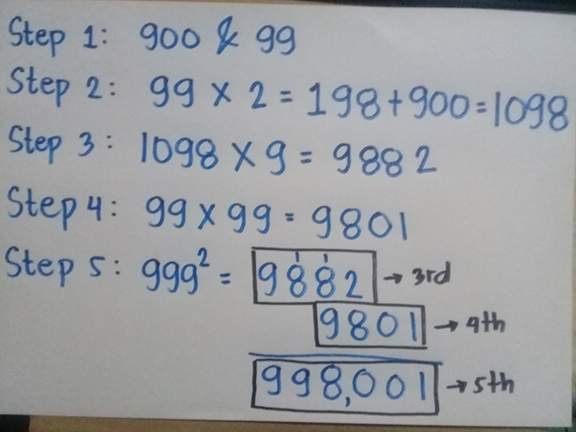 Step 1: 900 & 99
Step 2: 99 x 2 = 198 + 900 = 1098
Step 3: 1098 x 9 = 9882
Step 4: 99 x 99 = 9801
Step 5: 999² = 9882 → 3rd
9801 → 4th
998,001 → 5th